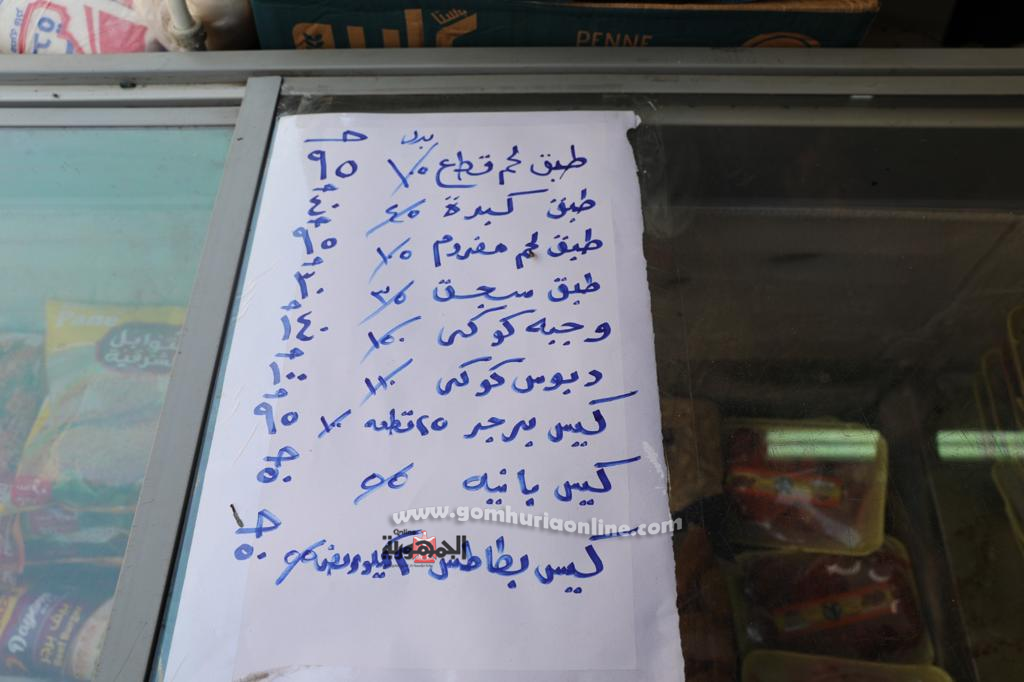 PENNE
بدل جـ
طبق لحم قطاع ١٠٠ ٩٥
طبق كبدة ٤٥ ٤٠
طبق لحم مفروم ١٠٥ ٩٥
طبق سجق ٣٥ ٣٠
وجبه كوكى ١٥٠ ١٤٠
دبوس كوكى ١١٠ ١٠٠
كيس برجر ٢٥ قطعه ١٠٠ ٩٥
كيس بانيه ٥٥ ٥٠
www.gomhuriaonline.com
Online
الجمهورية
كيس بطاطس
Pane
توابل
شرقية